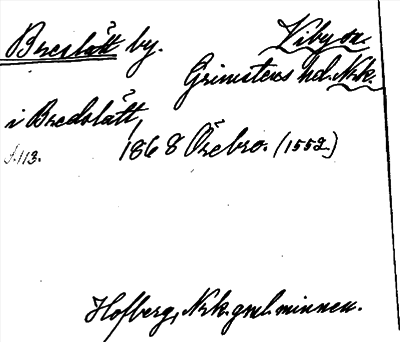 Bresslått by. Viby sn.
Grimstens hd. Nrk.
i Bredslått,
s. 113. 1868 Örebro. (1552)
Hofberg, Nrk. gml. minnen.